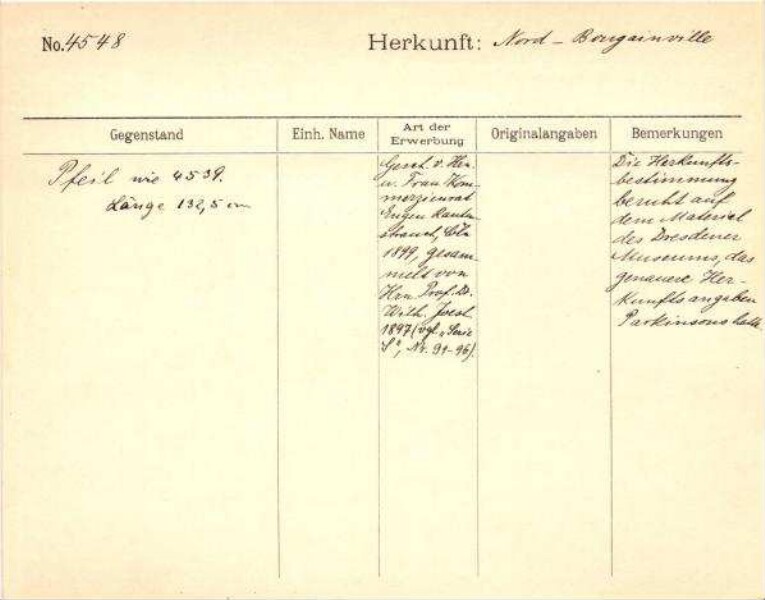 No. 4548
Herkunft: Nord - Bougainville
Gegenstand
Einh. Name
Art der Erwerbung
Originalangaben
Bemerkungen
Pfeil wie 4539.
Länge 132,5 cm
Gesch. v. Hrn.
u. Frau Kom-
merzienrat
Eugen Rauten-
strauch, Cöln
1899, gesam-
melt von
Hrn Prof. Dr.
Wilh. Joest
1897 (vgl. „Serie
S", Nr. 91-96).
Die Herkunfts-
bestimmung
beruht auf
dem Material
des Dresdener
Museums, das
genauere Her-
kunftsangaben
Parkinsons hatte